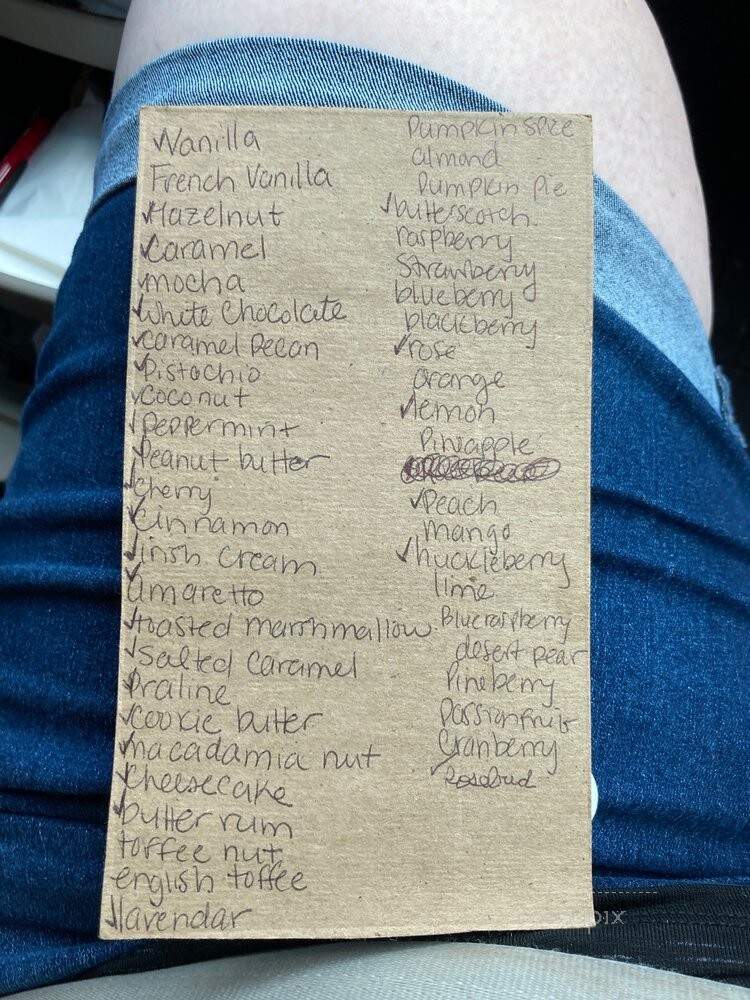 Vanilla
French Vanilla
✓Hazelnut
✓Caramel
✓mocha
✓White Chocolate
✓Caramel Pecan
✓Pistachio
✓Coconut
✓Peppermint
✓Peanut butter
✓Cherry
✓Cinnamon
✓irish cream
✓amaretto
✓toasted marshmallow
✓Salted Caramel
✓Praline
✓Cookie butter
✓macadamia nut
✓Cheesecake
✓butter rum
toffee nut
english toffee
✓lavendar
Pumpkin Spice
almond
Pumpkin Pie
✓butterscotch
raspberry
Strawberry
blueberry
blackberry
✓rose
orange
✓lemon
Pineapple
✓Peach
mango
✓huckleberry
lime
Blueraspberry
desert pear
Pineberry
Passionfruit
Cranberry
✓Rosebud